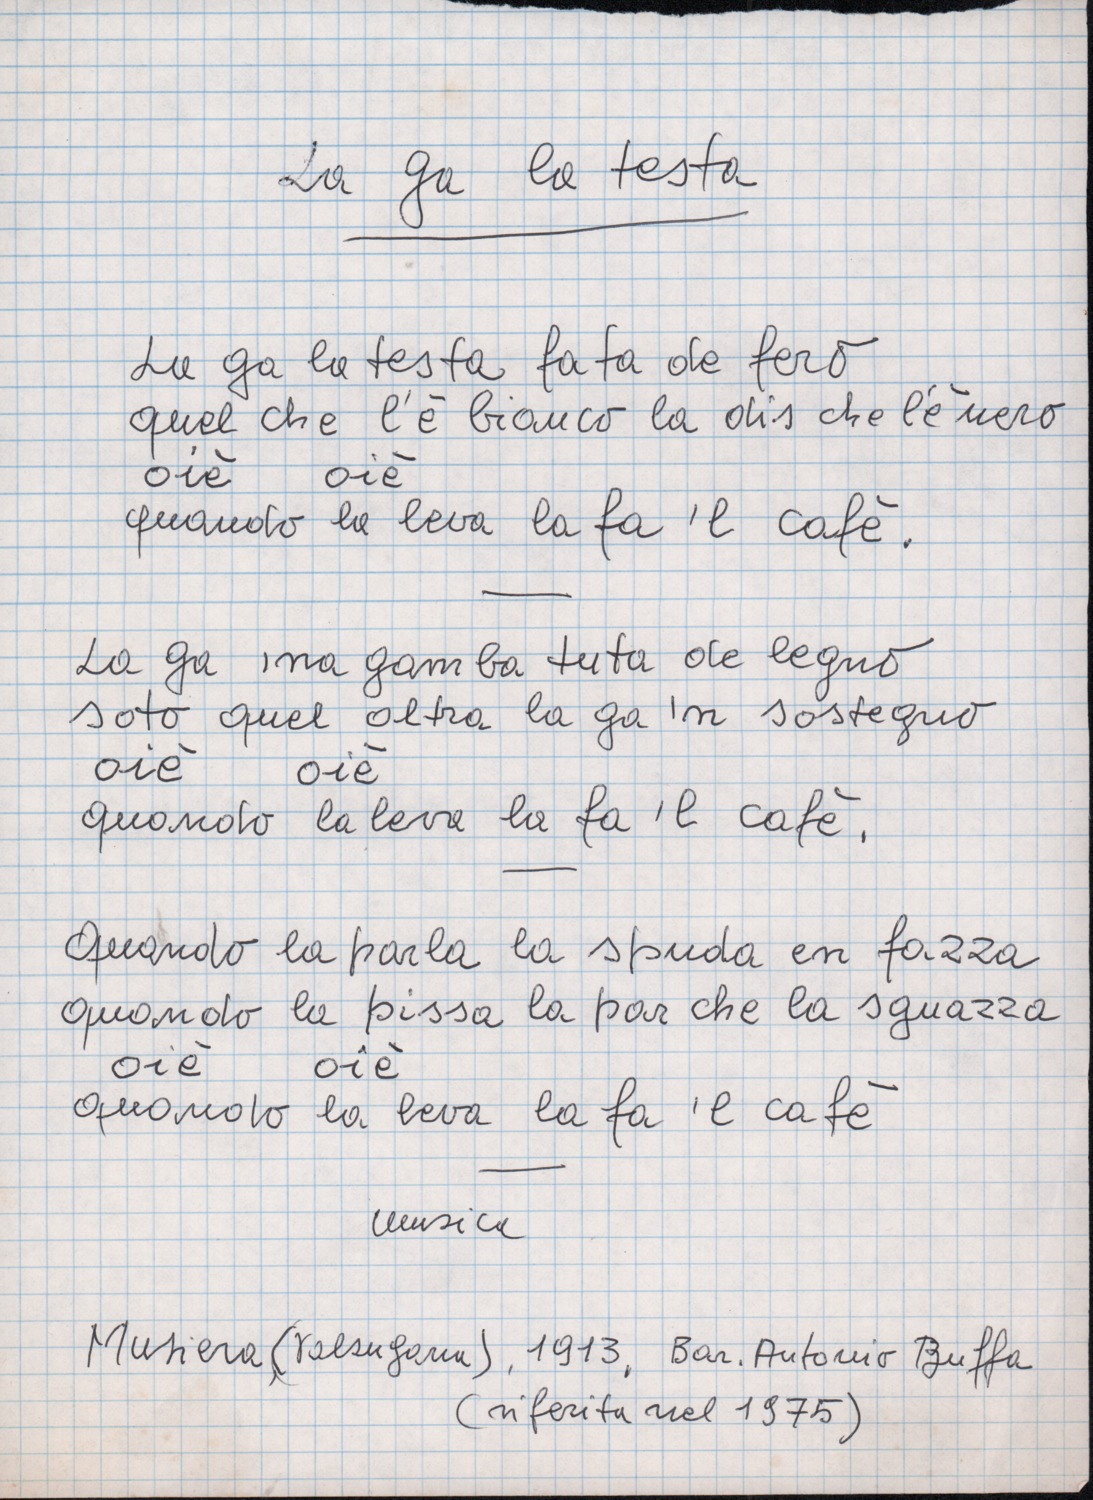 La ga la testa
La ga la testa fata de fero
quel che l'è bianco la dis che l'è nero
oiè oiè
quando la leva la fa 'l cafè.
La ga ina gamba tuta de legno
soto quel oltra la ga 'n sostegno
oiè oiè
quando la leva la fa 'l cafè.
Quando la parla la spuda en fazza
quando la pissa la par che la sguazza
oiè oiè
quando la leva la fa 'l cafè
musica
(Valsugana), 1913, Bar. Antonio Buffa
(riferita nel 1975)